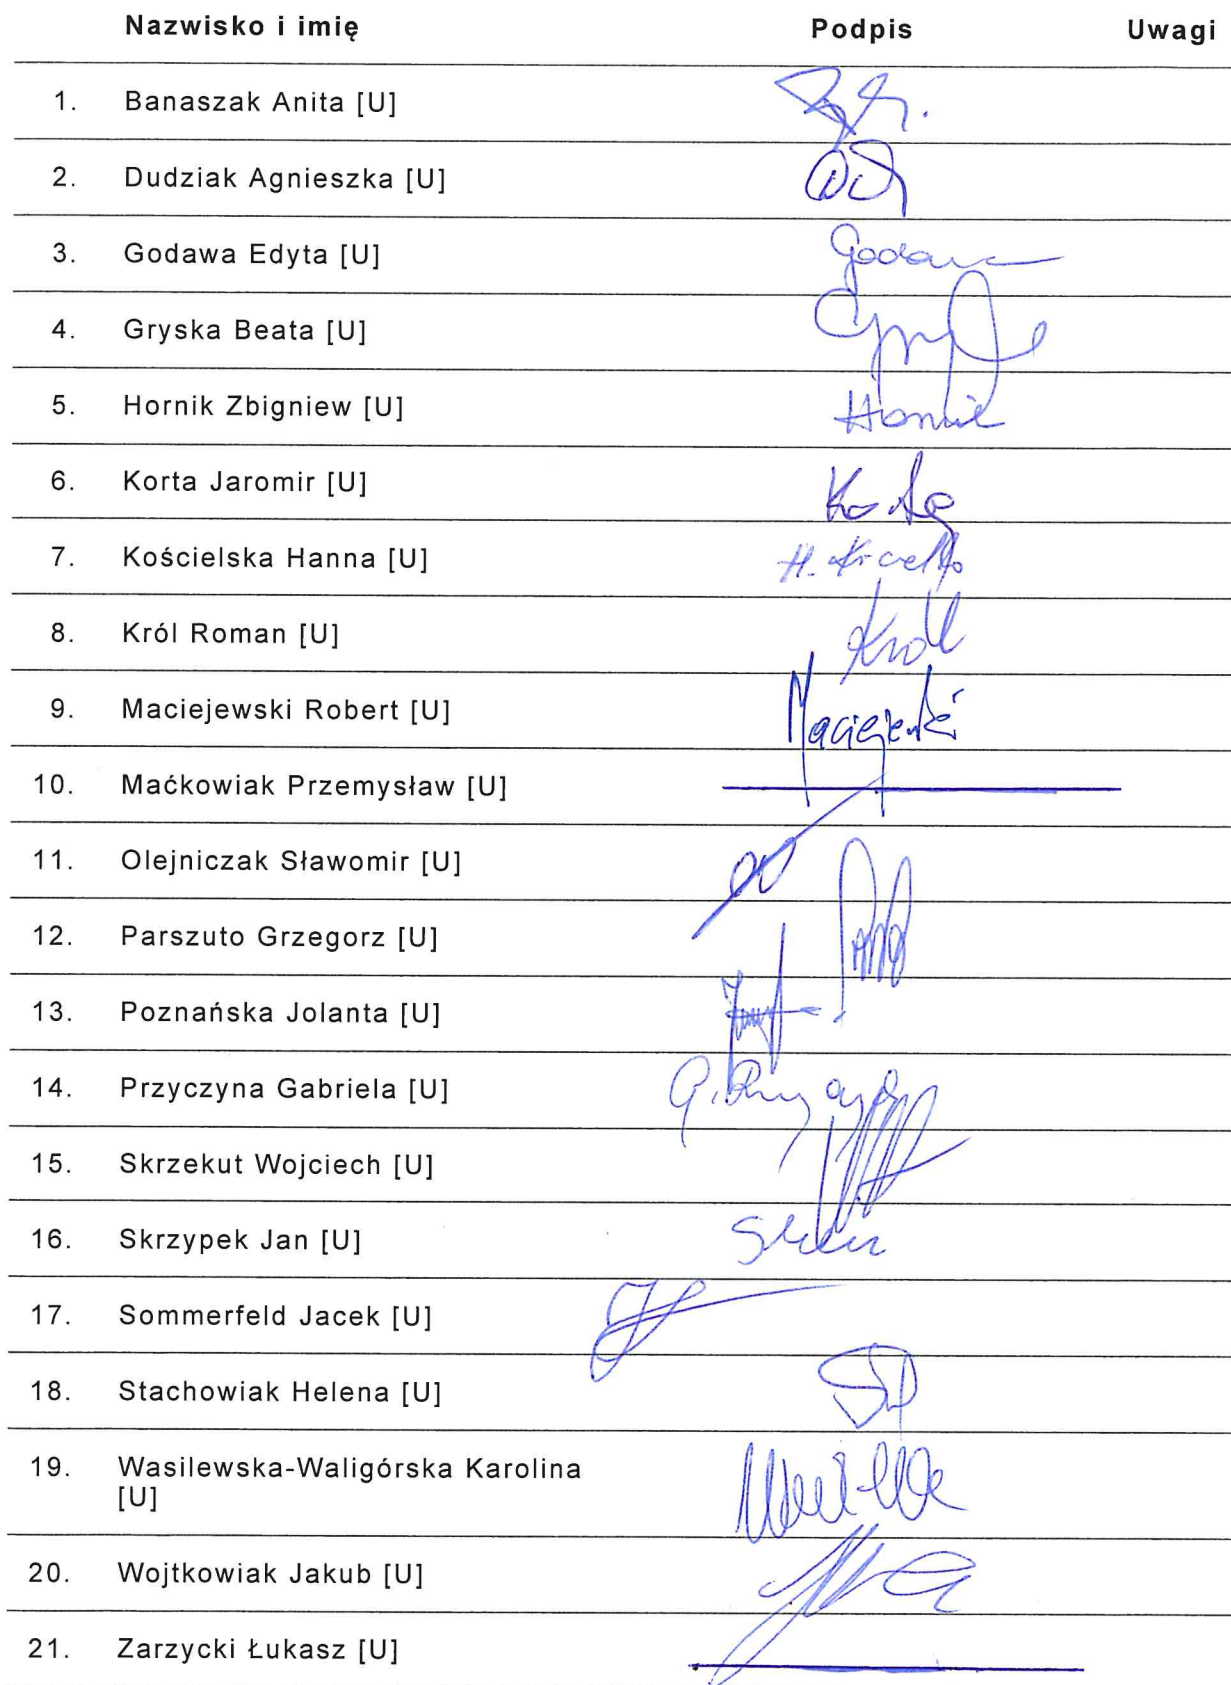 Nazwisko i imię Podpis Uwagi
1. Banaszak Anita [U]
2. Dudziak Agnieszka [U]
3. Godawa Edyta [U] Godawa
4. Gryska Beata [U]
5. Hornik Zbigniew [U] Hornik
6. Korta Jaromir [U] Korta
7. Kościelska Hanna [U] H.
8. Król Roman [U] Król
9. Maciejewski Robert [U] Maciejewski
10. Maćkowiak Przemysław [U]
11. Olejniczak Sławomir [U]
12. Parszuto Grzegorz [U]
13. Poznańska Jolanta [U]
14. Przyczyna Gabriela [U] G.
15. Skrzekut Wojciech [U]
16. Skrzypek Jan [U]
17. Sommerfeld Jacek [U]
18. Stachowiak Helena [U]
19. Wasilewska-Waligórska Karolina
[U]
20. Wojtkowiak Jakub [U]
21. Zarzycki Łukasz [U]